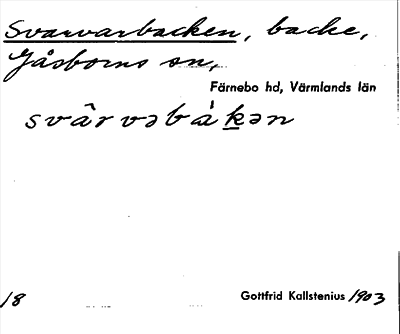 Svarvarbacken, backe,
Gåsborns sn,
Färnebo hd, Värmlands län
svârvəbákən
18
Gottfrid Kallstenius 1903